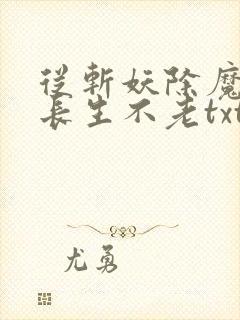 從斬妖除魔
長生不老txt
尤勇